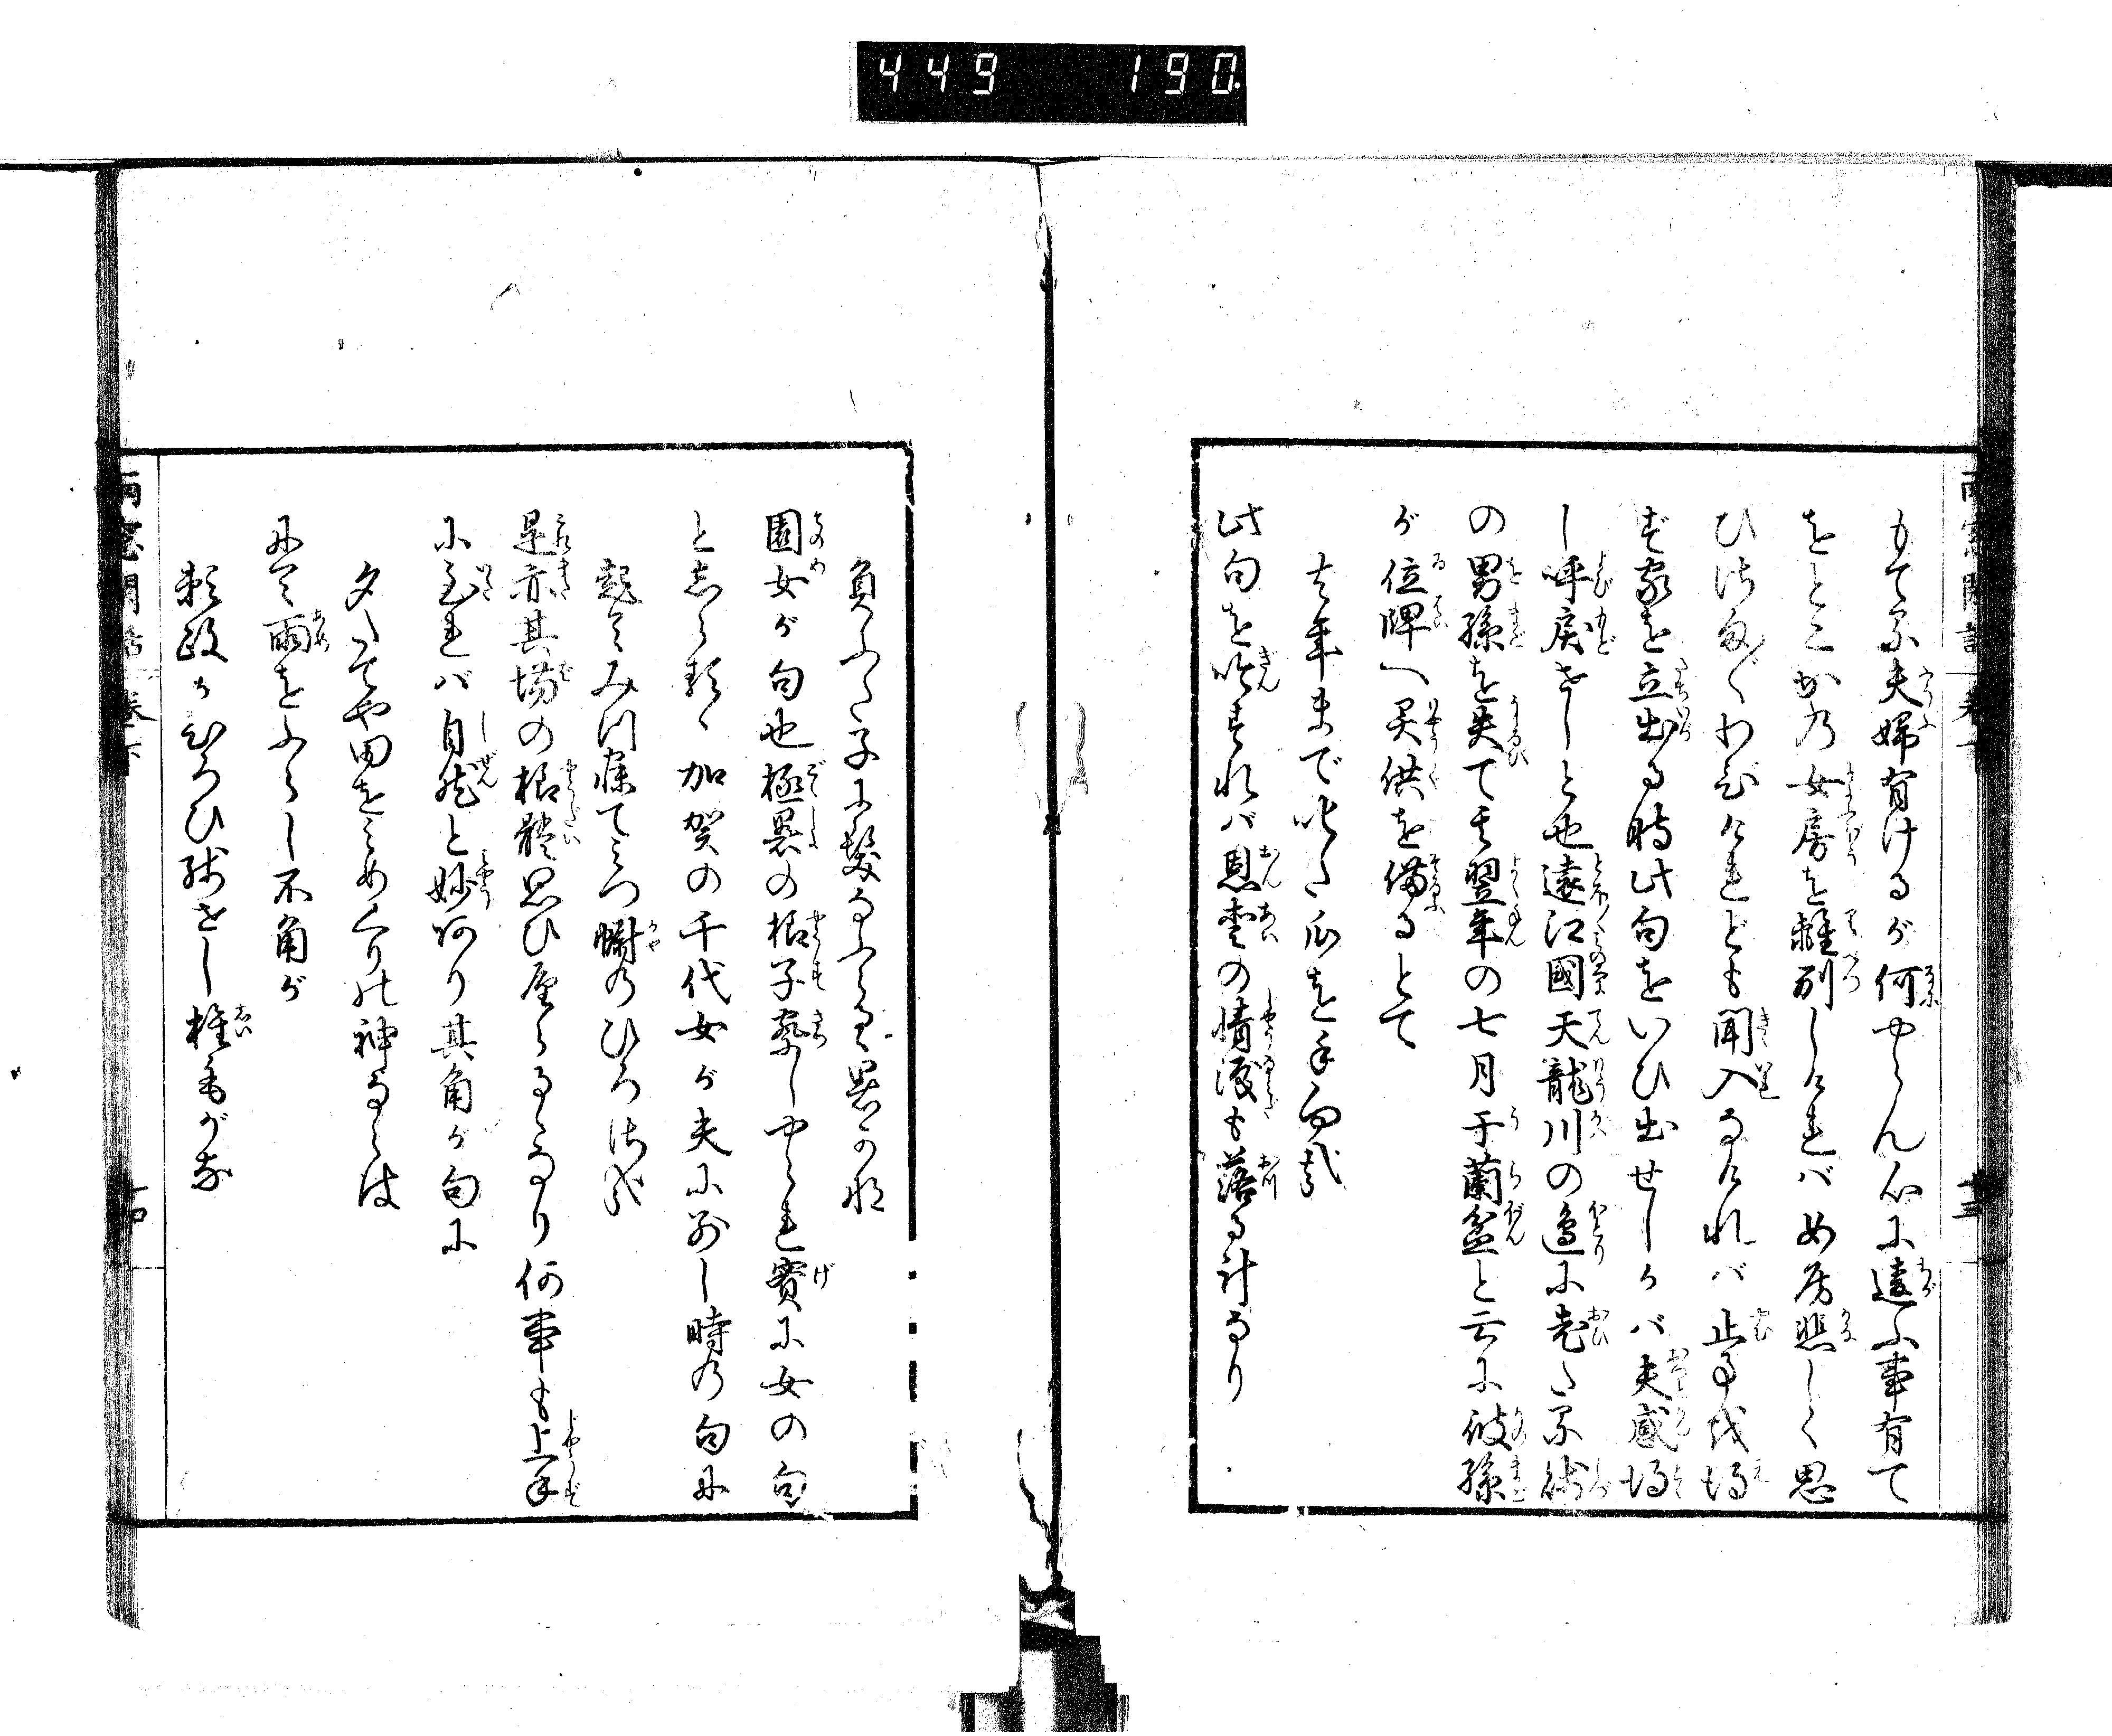 449 190
もてる夫婦有けるが何やらん心に違ふ事有て
をとこかの女房を離別しければ女房悲しく思
ひさま〴〵わびけれども聞入なければ止事を得
ず家を立出る時此句をいひ出せしかば夫感得
し呼戻せしと也遠江國天龍川の邉に老たる姉
の男孫を失て其翌年の七月于蘭盆と云に彼孫
が位牌へ霊供を備るとて
去年まで叱た瓜を手向哉
此句を吟ずれば恩愛の情涙も落る計なり
負ふた子に髪なふらるゝ暑かな
園女が句也極暑の様子察しやられ實に女の句
としらるゝ加賀の千代女が夫に別し時の句に
起てみつ寐てみつ蚊屋のひろさ哉
是亦其場の様體思ひ屋らるゝなり何事も上手
に至れば自然と妙あり其角が句に
夕たちや田をみめくりの神ならは
にて雨をふらし不角が
頼政がひろひ残せし椎もがな
雨窓閑話 卷下 十四